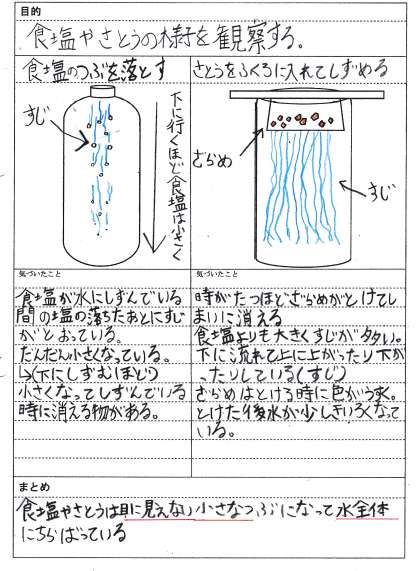 目的
食塩やさとうの様子を観察する。
食塩のつぶを落とす
さとうをふくろに入れてしずめる
すじ
下に行くほど食塩は小さく
ざらめ
すじ
気づいたこと
食塩が水にしずんでいる
間の塩の落ちたあとにすじ
がとおっている。
だんだん小さくなっている。
↳(下にしずむほど)
小さくなってしずんでいる
時に消える物がある。
気づいたこと
時がたつほどざらめがとけてし
まいに消える
食塩よりも大きくすじが多い。
下に流れて上に上がったり下が
ったりしている(すじ)
ざらめはとける時に色がうすく。
とけた後水が少しきいろくなって
いる。
まとめ
食塩やさとうは目に見えない小さなつぶになって水全体
にちらばっている